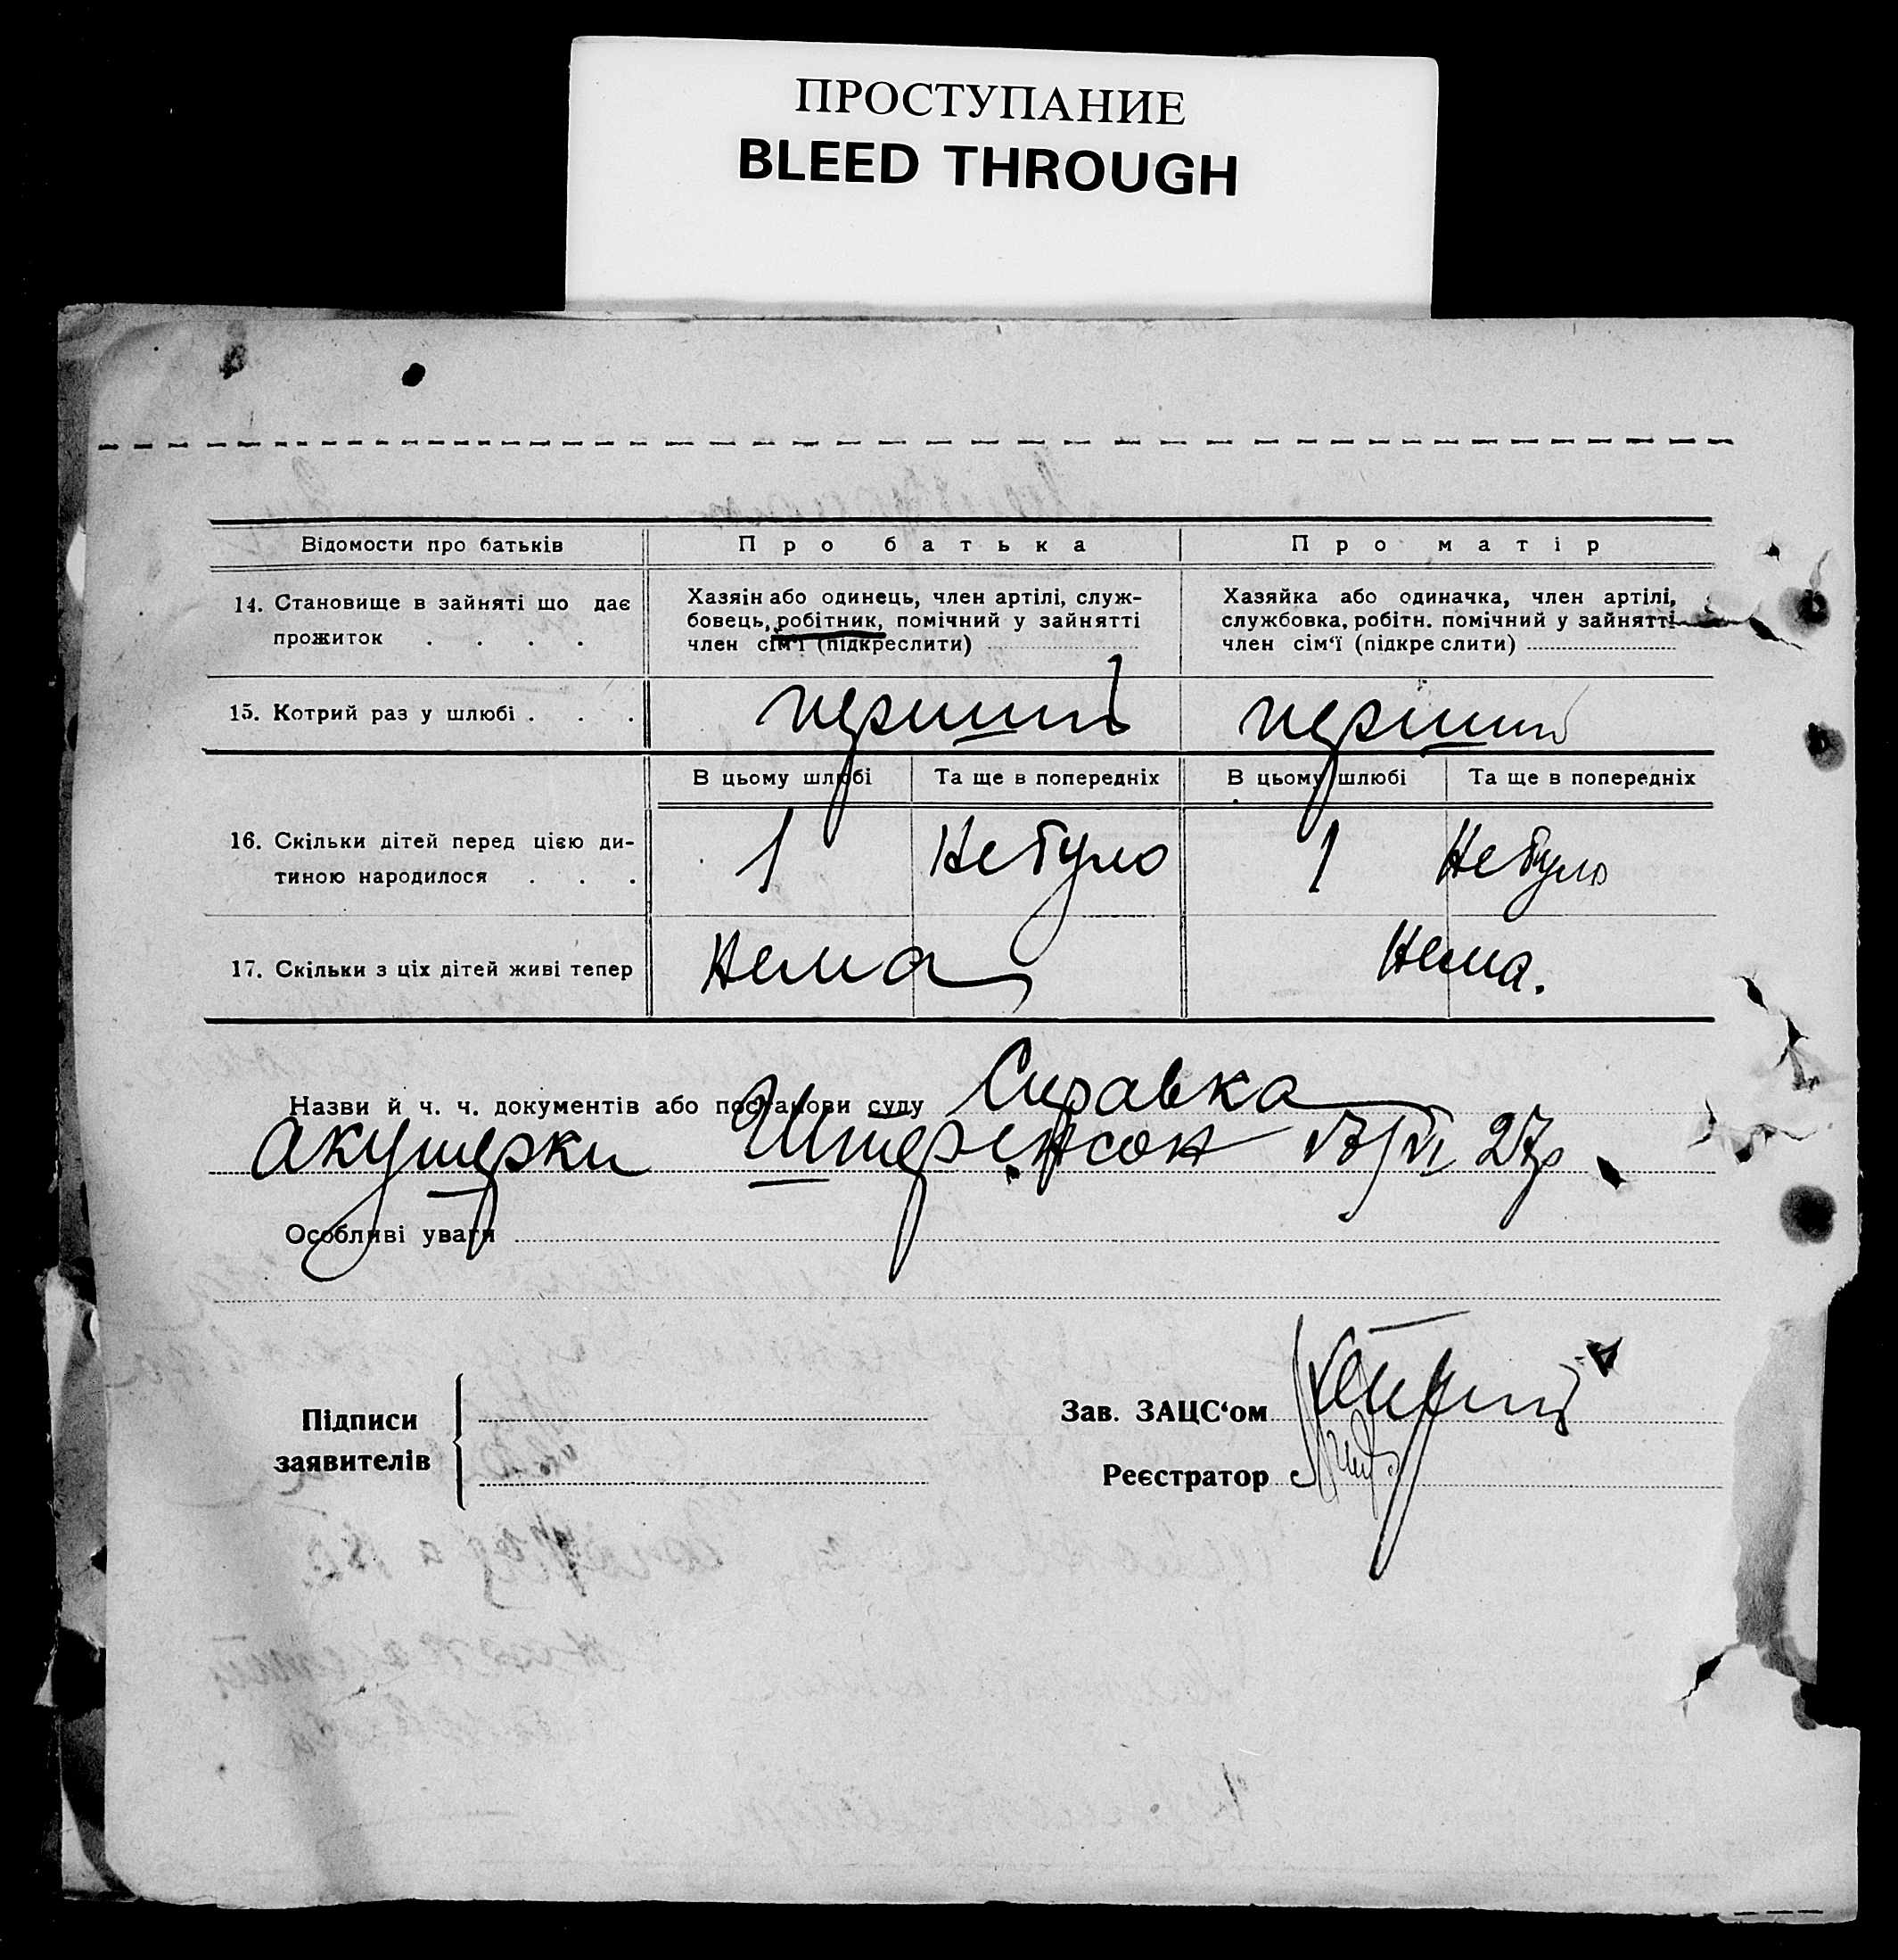 ПРОСТУПАНИЕ
BLEED THROUGH
Відомости про батьків
Про батька
Про матір
14. Становище в зайняті що дає
прожиток . . . .
Хазяїн або одинець, член артілі, служ-
бовець, робітник, помічний у зайнятті
член сім'ї (підкреслити)
Хазяйка або одиначка, член артілі,
службовка, робітн. помічний у зайнятті
член сім'ї (підкреслити)
15. Котрий раз у шлюбі . . .
перший
перший
В цьому шлюбі
Та ще в попередніх
В цьому шлюбі
Та ще в попередніх
16. Скільки дітей перед цією ди-
тиною народилося . . .
1
Не було
1
Не було
17. Скільки з ціх дітей живі тепер
Нема
Нема.
Назви й ч. ч. документів або постанови суду Справка
акушерки Штеренсон 27р.
Особливі уваги
Підписи
заявителів
Зав. ЗАЦС'ом
Реєстратор